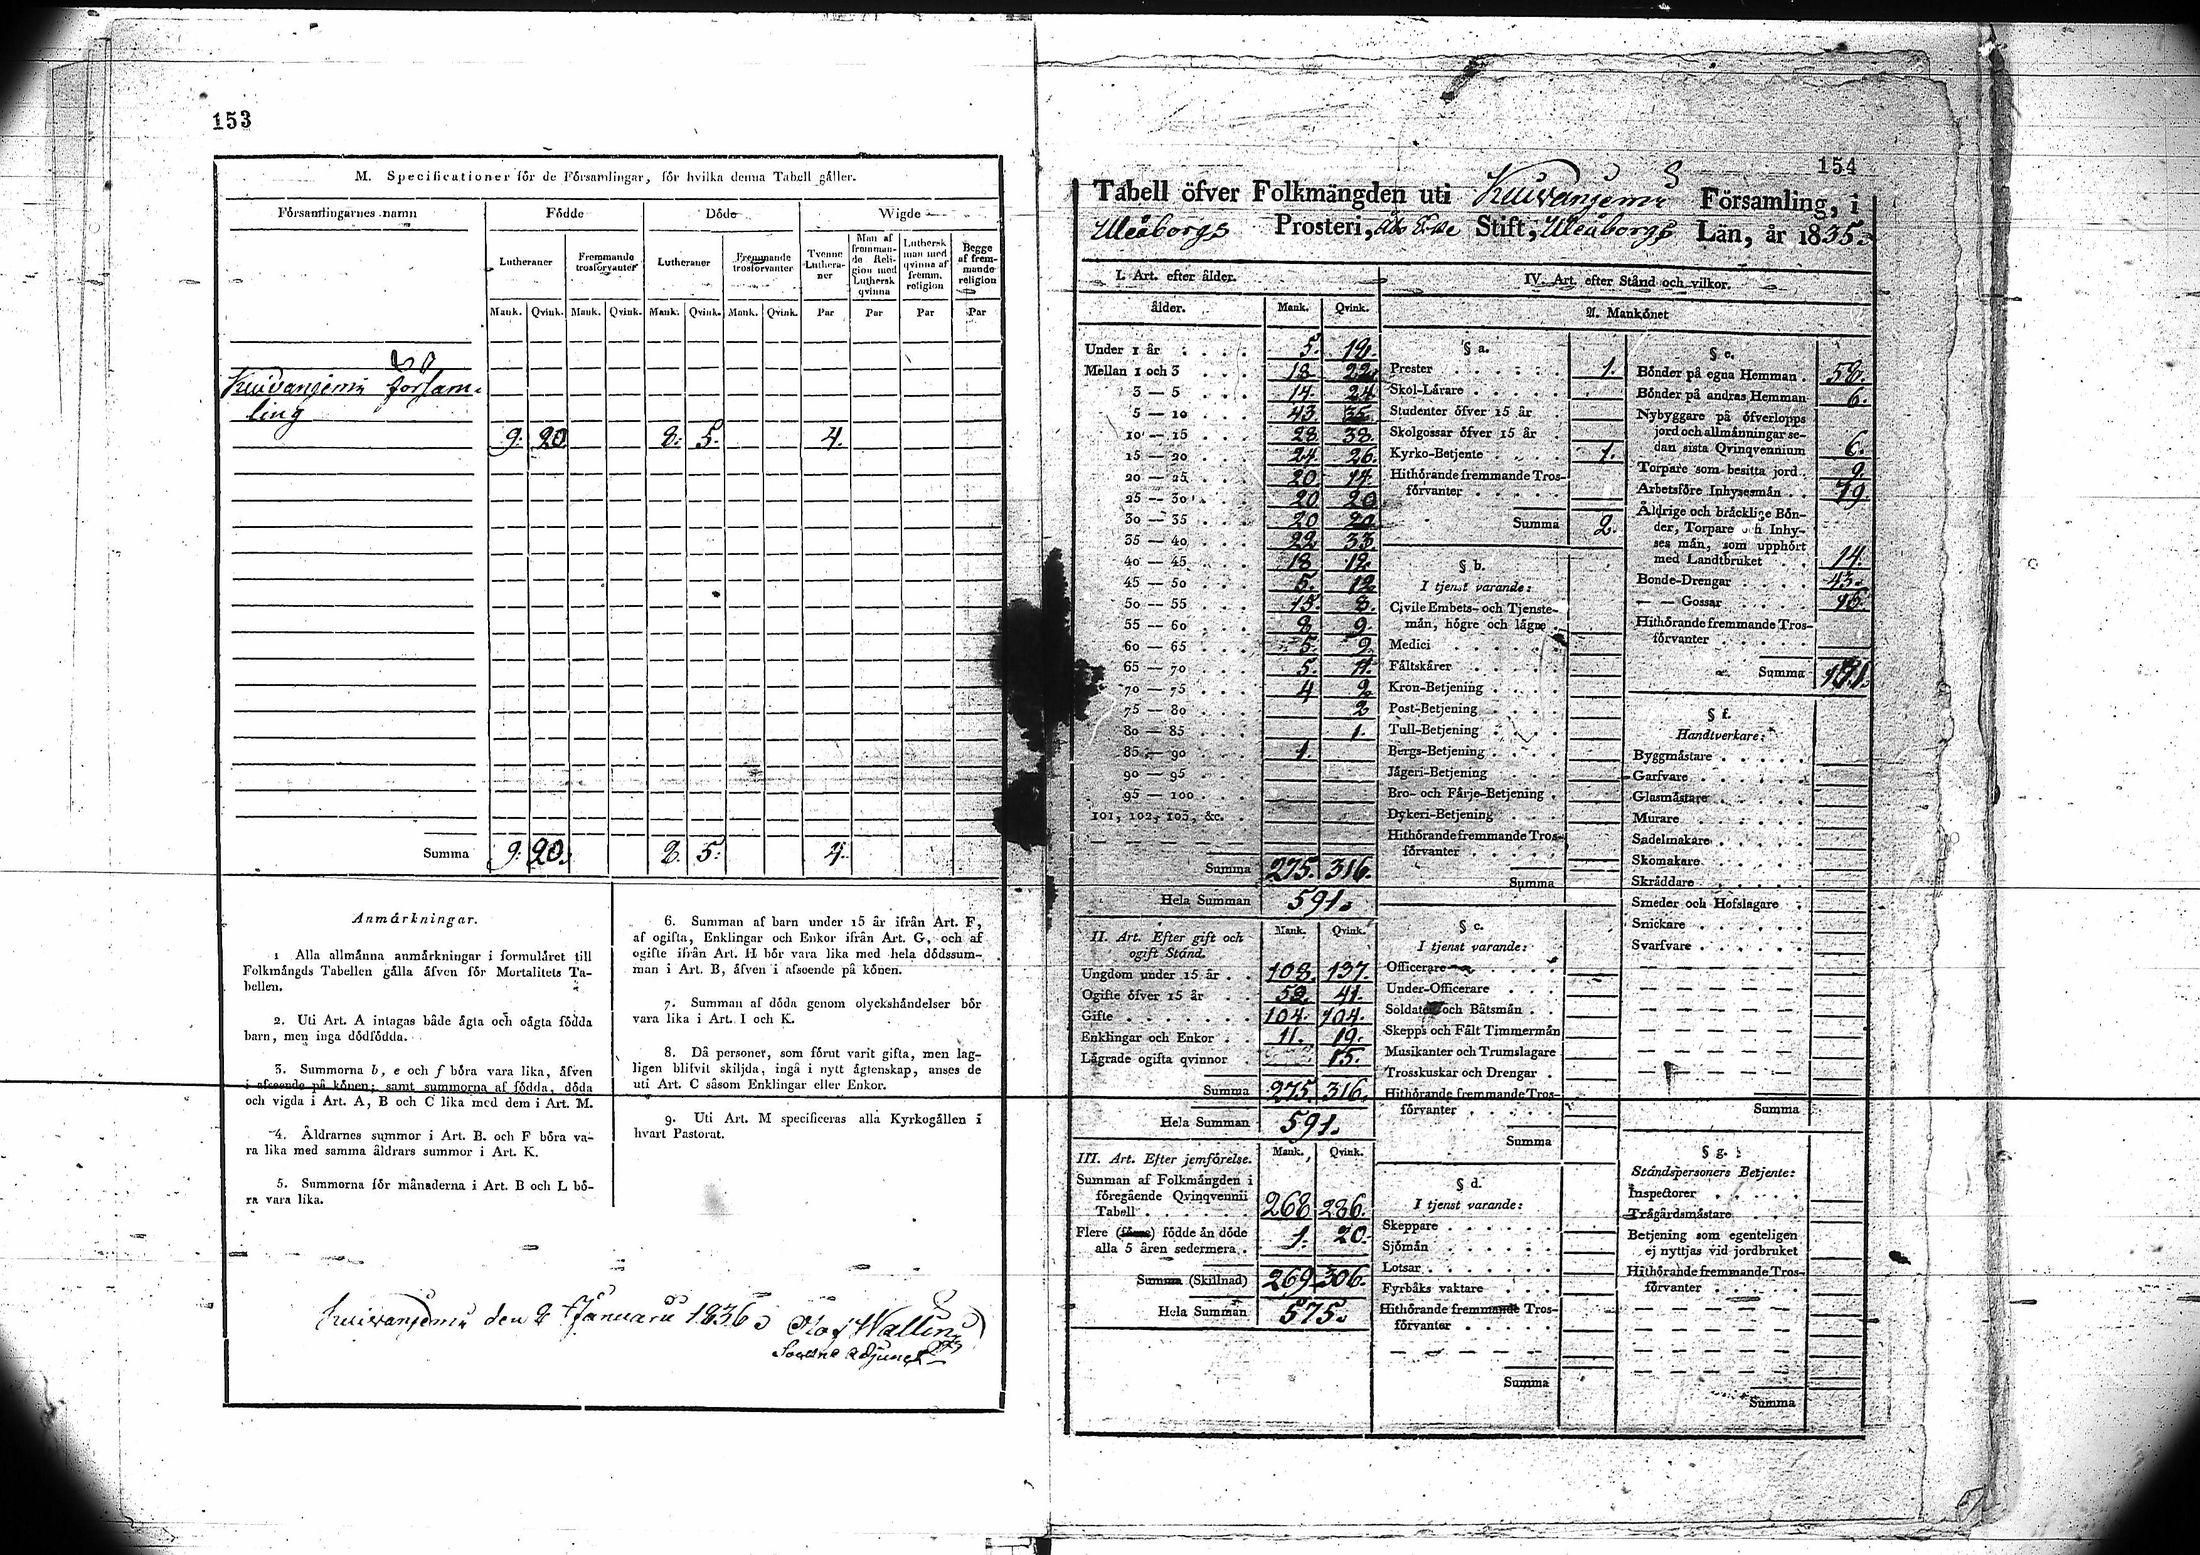 153
M. Specificationer för de Församlingar, för hvilka denna Tabell gäller.
Församlingarnes namn Födde Döde Wigde
Lutheraner Fremmande trosförvanter Lutheraner Fremmande trosförvanter Tvenne Lutheraner Man af fremmande Religion med Luthersk qvinna Luthersk man med qvinna af fremm. religion Begge af fremmande religion
Mank. Qvink. Mank. Qvink. Mank. Qvink. Mank. Qvink. Par Par Par Par
Kuivaniemi församling
9. 20 8. 5. 4.
Summa 9. 20. 8. 5. 4.
Anmärkningar.
1 Alla allmänna anmärkningar i formuläret till
Folkmängds Tabellen gälla äfven för Mortalitets Ta-
bellen.
2. Uti Art. A intagas både ägta och oägta födda
barn, men inga dödfödda.
3. Summorna b, e och f böra vara lika, äfven
i afseende på könen; samt summorna af födda, döda
och vigda i Art. A, B och C lika med dem i Art. M.
4. Åldrarnes summor i Art. B. och F böra va-
ra lika med samma åldrars summor i Art. K.
5. Summorna för månaderna i Art. B och L bö-
ra vara lika.
6. Summan af barn under 15 år ifrån Art. F,
af ogifta, Enklingar och Enkor ifrån Art. G, och af
ogifte ifrån Art. H bör vara lika med hela dödssum-
man i Art. B, äfven i afseende på könen.
7. Summan af döda genom olyckshändelser bör
vara lika i Art. I och K.
8. Då personer, som förut varit gifta, men lag-
ligen blifvit skiljda, ingå i nytt ägtenskap, anses de
uti Art. C såsom Enklingar eller Enkor.
9. Uti Art. M specificeras alla Kyrkogällen i
hvart Pastorat.
Kuivaniemi den 2 Januarii 1836 Wallin
Sockne adjunct
154
Tabell öfver Folkmängden uti Kuivaniemi Församling, i
Uleåborgs Prosteri, Stift, Uleåborgs Län, år 1835.
I. Art. efter ålder.
ålder. Mank. Qvink.
Under 1 år 5. 12.
Mellan 1 och 3 18. 22.
3 — 5 14. 24
5 — 10 43. 35.
10 — 15 28. 38.
15 — 20 24. 26.
20 — 25 20. 14.
25 — 30 20 20
30 — 35 20 20
35 — 40 22 33.
40 — 45 18 12.
45 — 50 5. 12
50 — 55 15. 8.
55 — 60 8 9.
60 — 65 5. 9.
65 — 70 5.
70 — 75 4 2
75 — 80 2
80 — 85 1.
85 — 90 1.
90 — 95
95 — 100
101, 102, 103, &c.
Summa 275. 316.
Hela Summan 591.
II. Art. Efter gift och ogift Stånd. Mank. Qvink.
Ungdom under 15 år 108. 137.
Ogifte öfver 15 år 52. 41.
Gifte 104. 104.
Enklingar och Enkor 11. 19.
Lägrade ogifta qvinnor 15.
Summa 275. 316.
Hela Summan 591.
III. Art. Efter jemförelse. Mank. Qvink.
Summan af Folkmängden i
föregående Qvinqvennii
Tabell 268 286.
Flere (färre) födde än döde
alla 5 åren sedermera 1. 20.
Summa (Skillnad) 269 306.
Hela Summan 575.
IV. Art. efter Stånd och vilkor.
A. Mankönet
§ a.
Prester 1.
Skol-Lärare
Studenter öfver 15 år
Skolgossar öfver 15 år
Kyrko-Betjente 1.
Hithörande fremmande Tros-
förvanter
Summa 2.
§ b.
I tjenst varande:
Civile Embets- och Tjenste-
män, högre och lägre
Medici
Fältskärer
Kron-Betjening
Post-Betjening
Tull-Betjening
Bergs-Betjening
Jägeri-Betjening
Bro- och Färje-Betjening
Dykeri-Betjening
Hithörande fremmande Tros-
förvanter
Summa
§ c.
I tjenst varande:
Officerare
Under-Officerare
Soldater och Båtsmän
Skepps och Fält Timmermän
Musikanter och Trumslagare
Trosskuskar och Drengar
Hithörande fremmande Tros-
förvanter
Summa
§ d.
I tjenst varande:
Skeppare
Sjömän
Lotsar
Fyrbåks vaktare
Hithörande fremmande Tros-
förvanter
Summa
§ e.
Bönder på egna Hemman
Bönder på andras Hemman 6.
Nybyggare på öfverlopps
jord och allmänningar se-
dan sista Qvinqvennium 6.
Torpare som besitta jord 9.
Arbetsföre Inhysesmän 19.
Äldrige och bräcklige Bön-
der, Torpare och Inhy-
ses män, som upphört
med Landtbruket 14.
Bonde-Drengar 43.
— — Gossar
Hithörande fremmande Tros-
förvanter
Summa
§ f.
Handtverkare:
Byggmästare
Garfvare
Glasmästare
Murare
Sadelmakare
Skomakare
Skräddare
Smeder och Hofslagare
Snickare
Svarfvare
Summa
§ g.
Ståndspersoners Betjente:
Inspectorer
Trägårdsmästare
Betjening som egenteligen
ej nyttjas vid jordbruket
Hithörande fremmande Tros-
förvanter
Summa